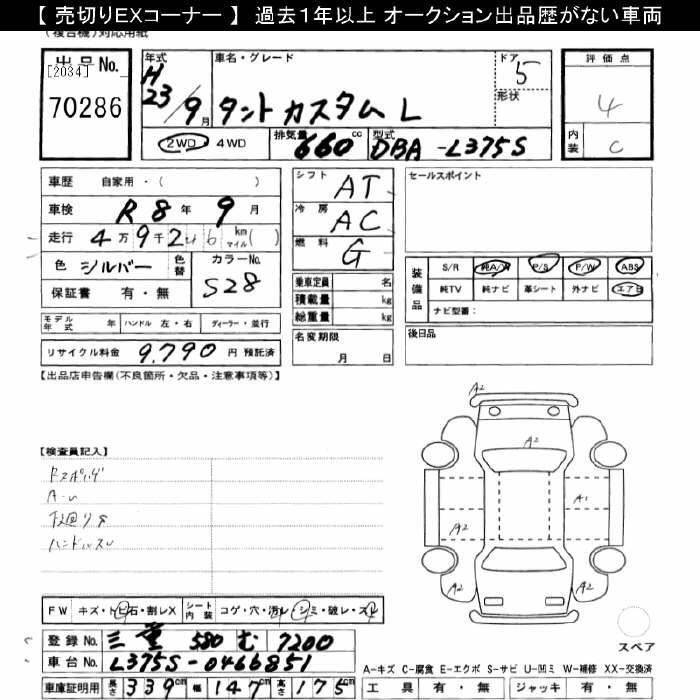 【 売切りEXコーナー 】 過去１年以上 オークション出品歴がない車両
(複合機)対応用紙
出品No.
[2034]
70286
年式
H
23/9月
車名・グレード
タントカスタム L
ドア
5
形状
2WD・4WD
排気量
660 cc
型式
DBA-L375S
評価点
4
内装
C
車歴 自家用・( )
車検 R 8 年 9 月
走行 4万9千246 km マイル( )
色 シルバー 色替 カラーNo.
S28
保証書 有・無
シフト AT
冷房 AC
燃料 G
乗車定員 名
積載量 kg
総重量 kg
セールスポイント
装備品
S/R 純A/W P/S P/W ABS
純TV 純ナビ 革シート 外ナビ エアB
ナビ型番：
モデル年式 年 ハンドル 左・右 ディーラー・並行
リサイクル料金 9,790 円 預託済
名変期限
月 日
後日品
【出品店申告欄(不良箇所・欠品・注意事項等)】
【検査員記入】
A-U
下回りサ
ハンドルスレ
A2
A2
A1
A2
A2
A2
スペア
FW キズ・トビ石・割レX シート内装 コゲ・穴・汚レ・シミ・破レ・スレ
登録No. 三重 580 む 7200
車台No. L375S-0466851
車庫証明用 長さ 339cm 幅 147cm 高さ 175cm
A-キズ C-腐食 E-エクボ S-サビ U-凹ミ W-補修 XX-交換済
工具 有・無 ジャッキ 有・無